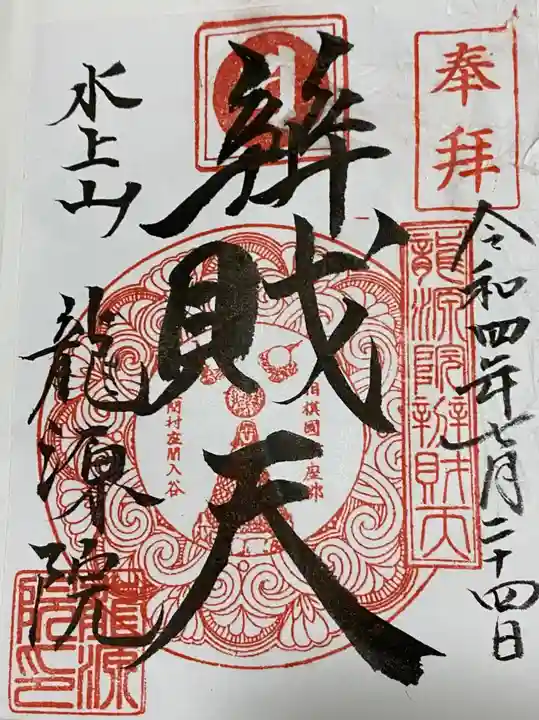 奉拝
令和四年七月二十四日
龍源院辨財天
辨財天
座間入谷
水上山
龍源院
龍源院印